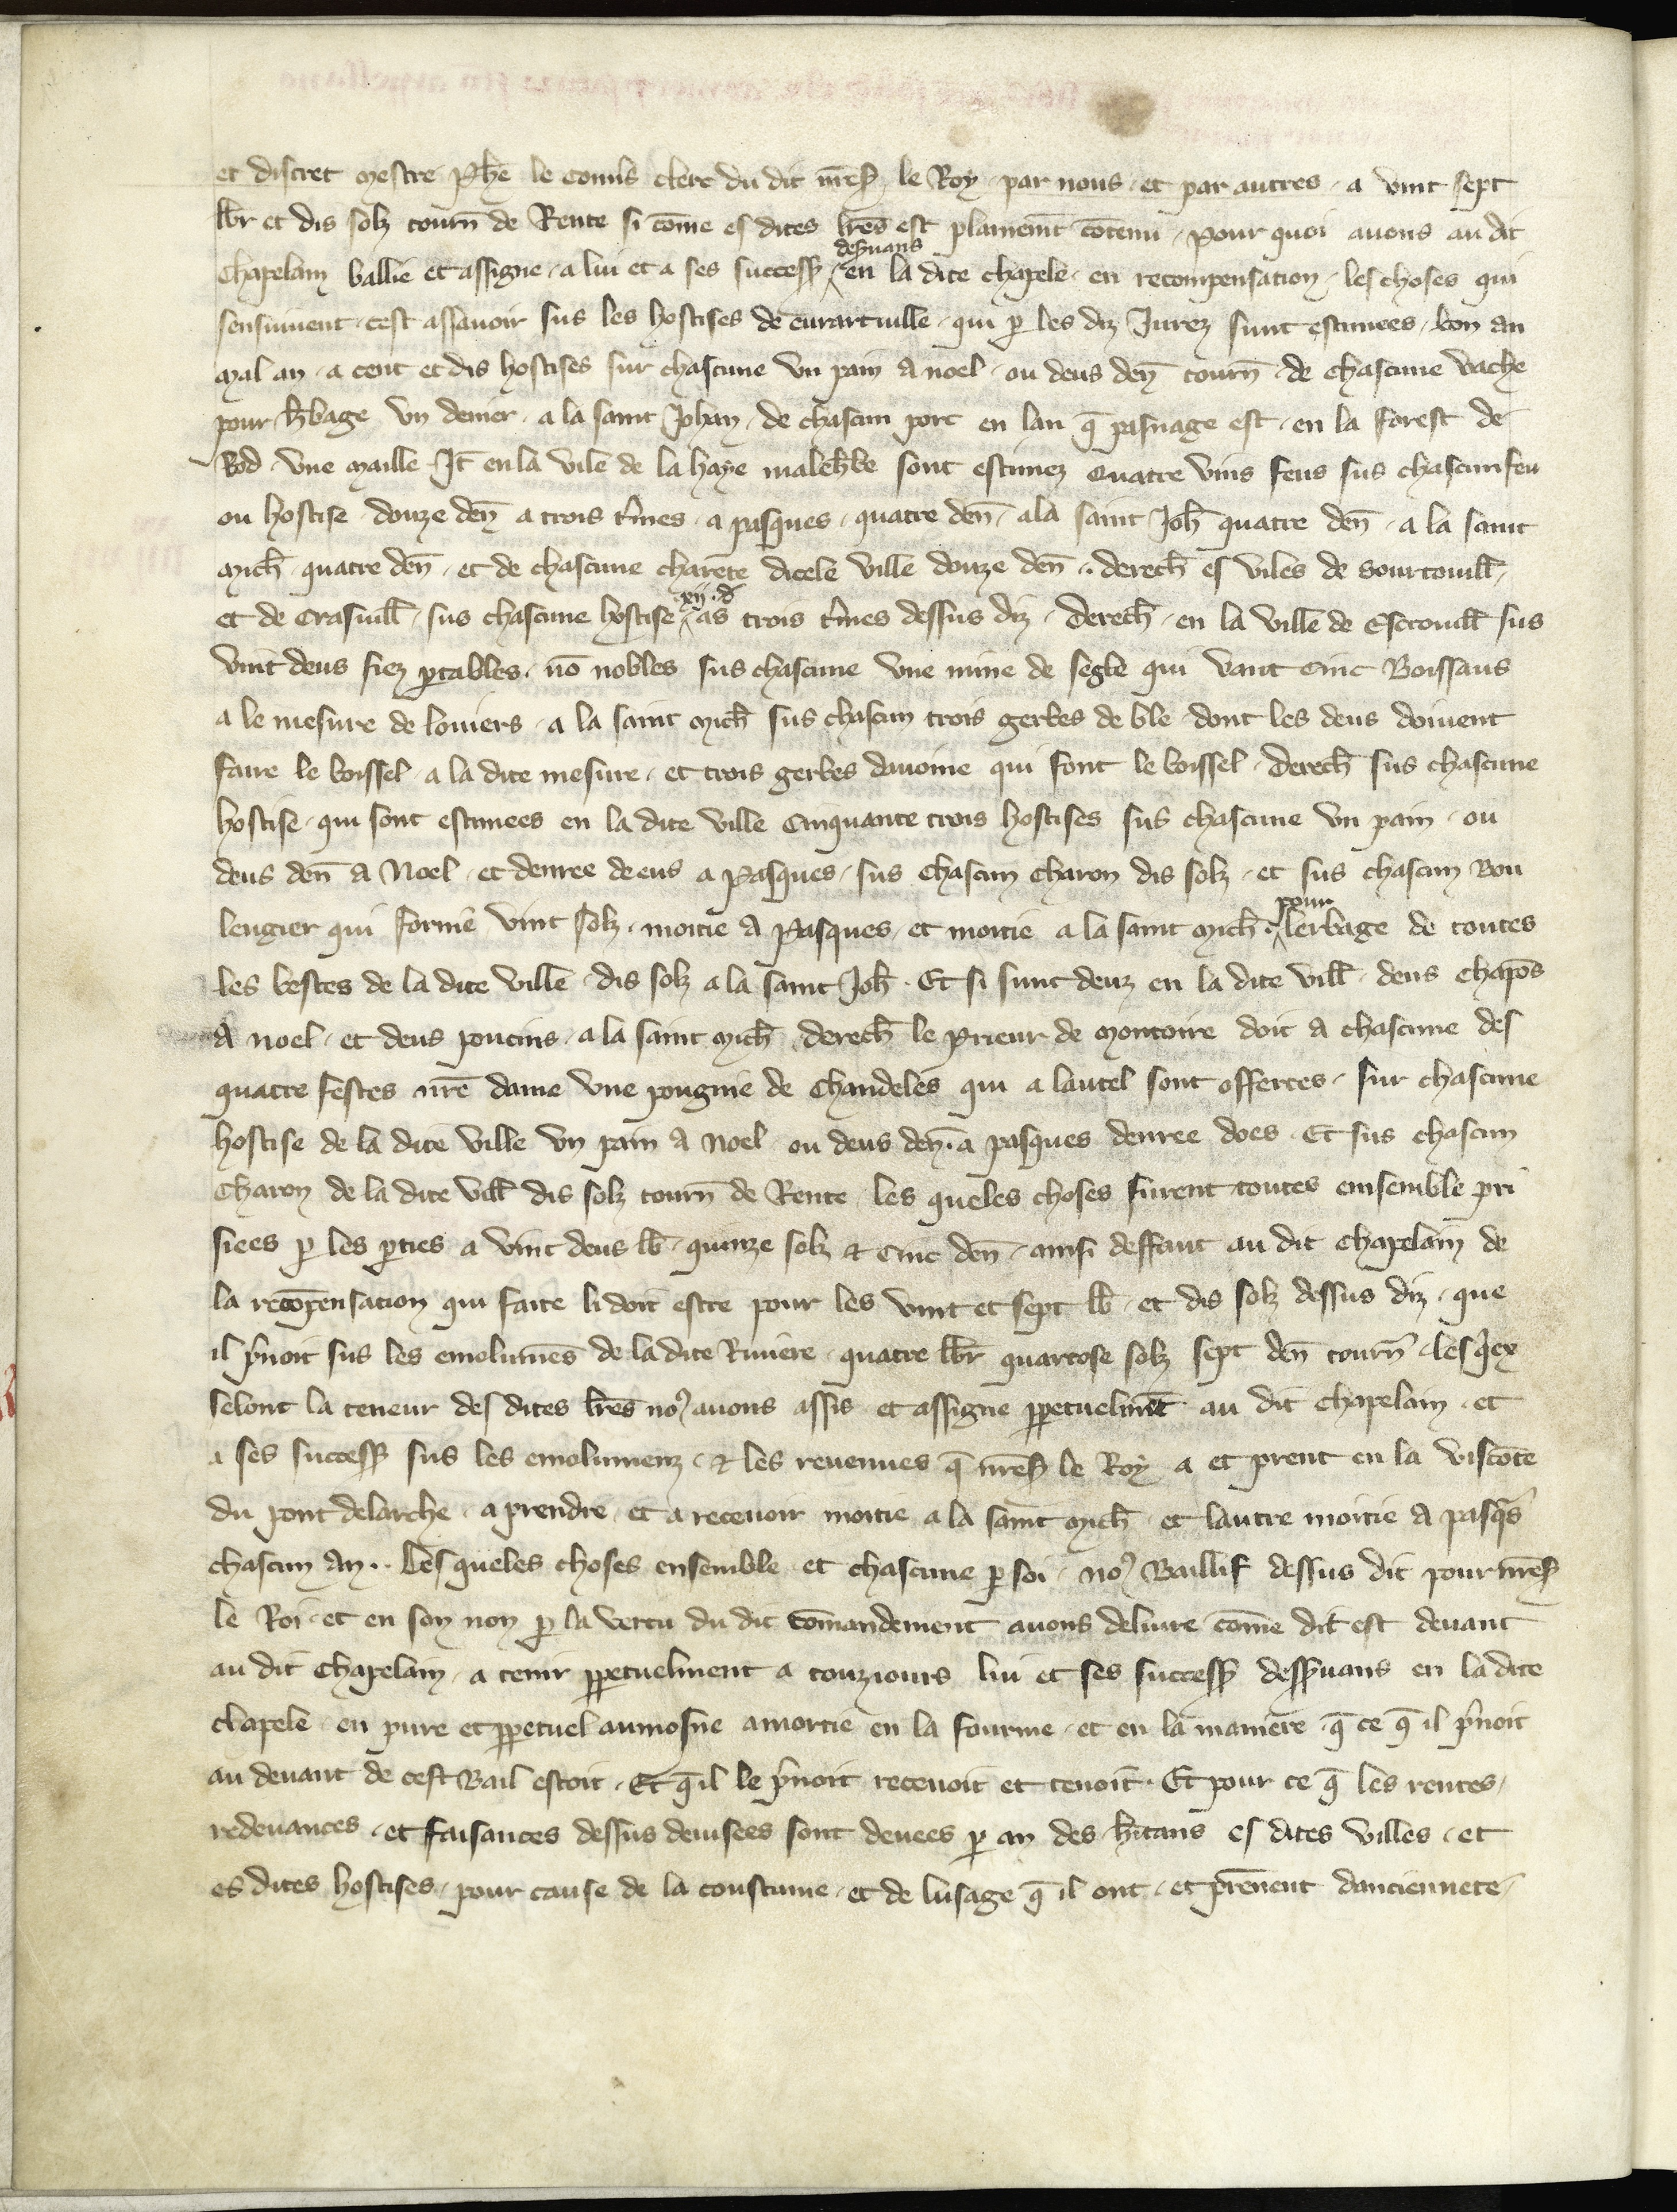 et discret mestre Phē le comis clerc du dit mēs̄ le Roy . par nous . et par autres . a vint sept
lb̄r et dis solz tourn̄ de Rente si cōme es dites lr̄es est plainemēt cōtenu . pour quoi auons au dit
Chapelain ballie et assigne . a lui et a ses success̄ deseruans en la dite chapele . en recompensation . les choses qui
sensuiuent . cest assauoir sus les hostises de eurartuille . qui p̱ les diz Jurez sunt estimees . bon an
mal an . a cent et dis hostises sur chascune vn pain a noel . ou deus den̄ tourn̄ . de chascune vache
pour h̄bage vn denier . a la saint Johan . de chascun porc en lan q̄ pasnage est . en la forest de
Bord . vne maille . Jt̄ en la vile de la haye maleh̄be sont estimez Quatre vins feus sus chascun feu
ou hostise . douze den̄ a trois t̄mes . a pasques . quatre den̄ . a la saint Joh̄ quatre den̄ . a la saint
mich̄ . quatre den̄ . et de chascune charete dicele ville douze den̄ . . derech̄ es viles de Sourtouill̄ .
et de Crasuill̄ . sus chascune hostise xij . d as trois t̄mes dessus diz . Derech̄ . en la ville de Escrouill̄ sus
vint deus fiez p̱tables . nō nobles sus chascune vne mine de segle qui vaut Cinc Boissaus
a le mesure de louiers . a la saint mich̄ sus chascun trois gerbes de ble dont les deus doiuent
faire le boissel . a la dite mesure . et trois gerbes dauoine qui font le boissel . Derech̄ sus chascune
hostise . qui sont estimees en la dite ville Cinquante trois hostises sus chascune vn pain . ou
deus den̄ a Noel . et denree de eus a Pasques . sus chascun Charon dis solz . et sus chascun Bou
lengier qui forme vint solz . moitie a Pasques et moitie a la saint mich̄ . pour lerbage de toutes
les bestes de la dite ville dis solz a la saint Joh̄ . Et si sunt deuz en la dite vill̄ . deus chapōs
a noel . et deus poucins . a la saint mich̄ . Derech̄ le Prieur de montoire doit a chascune des
quatre festes nr̄e dame vne pougnie de Chandeles qui a lautel sont offertes . sur chascune
hostise de la dite ville vn pain a Noel ou deus den̄ . a pasques denree does . Et sus chascun
Charon de la dite vill̄ dis solz tourn̄ de Rente . les queles choses furent toutes ensemble pri
siees p̱ les p̱ties a vint deus lb̄ . quinze solz & Cinc den̄ . ainsi deffaut au dit chapelain de
la recōpensation qui faite li doit estre pour les vint et sept lb̄ . et dis solz dessus diz . que
il p̄noit sus les emolumēs de la dite Riuiere . quatre lb̄r quatorse solz sept den̄ tourn̄ . lesq̄ex
selont la teneur des dites lr̄es noꝰ auons assis et assigne p̱petuelmēt au dit chapelain . et
a ses success̄ sus les emolumenz . & les reuenues q̄ mēs̄ le Roy a et prent en la viscōte
du pont delarche . a prendre . et a receuoir moitie a la saint mich̄ et lautre moitie a pasq̄s
chascun an . . Les queles choses ensemble et chascune p̱ soi . noꝰ Baillif dessus dit pour mēs̄
le Roi . et en son non p̱ la vertu du dit cōmandement auons deliure cōme dit est deuant
au dit Chapelain . a tenir p̱petuelment a touziours lui et ses success̄ dess̄uans en la dite
chapele . en pure et p̱petuel aumosne amortie en la fourme . et en la maniere . q̄ ce q̄ il p̄noit
au deuant de cest Bail estoit . Et q̄ il le p̄noit receuoit et tenoit . Et pour ce q̄ les rentes .
redeuances . et faisances dessus deuisees sont deuees p̱ an des h̄itans es dites villes . et
es dites hostises . pour cause de la coustume . et de lusage q̄ il ont . et prēnent danciennete .